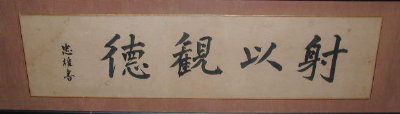 射以観徳
忠雄書